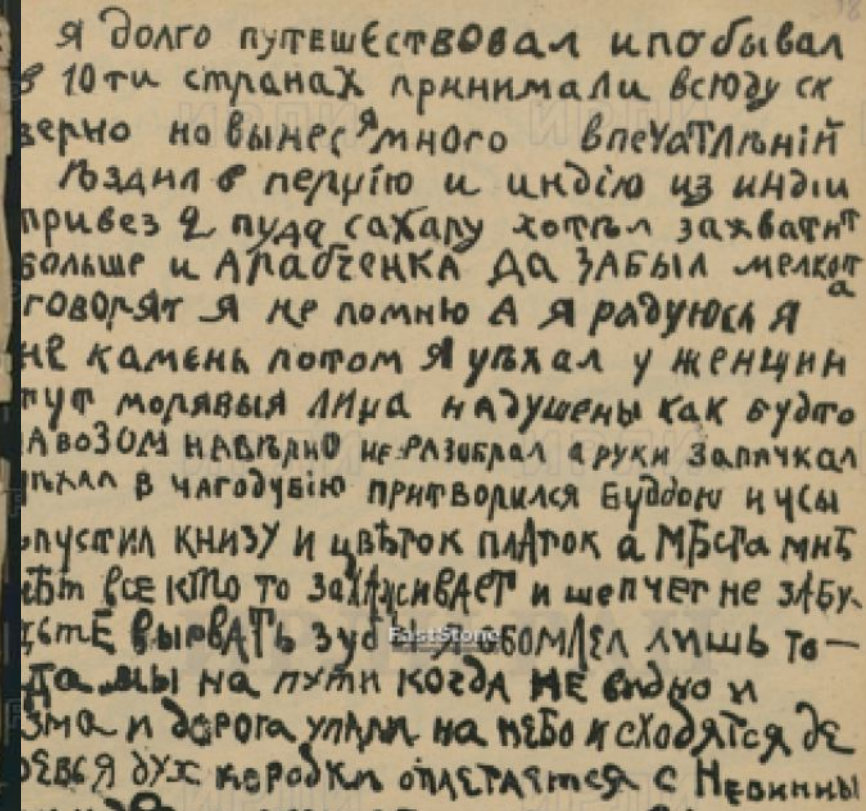 Я долго путешествовал и побывал
в 10ти странах принимали всюду ск
верно но вынес я много впечатлѣній
ѣздил в персію и индію из индіи
привез 2 пуда сахару хотѣл захватит
больше и Арабченка да забыл мелкот
а
говорят я не помню А я радуюсь я
не камень потом я уѣхал у женщин
тут морявыя лица надушены как будто
навозом навѣрно не разобрал а руки запачкал
уѣхал в чагодубію притворился буддою и усы
опустил книзу и цвѣток платок а мѣста мнѣ
нѣт все кто то захаживает и шепчет не забу-
дьте вырвать зуб и я обомлел лишь то—
да мы на пути когда не видно и
зма и дорога упали на небо и сходятся де
ревья дух коробки оплетается с невинны
FastStone